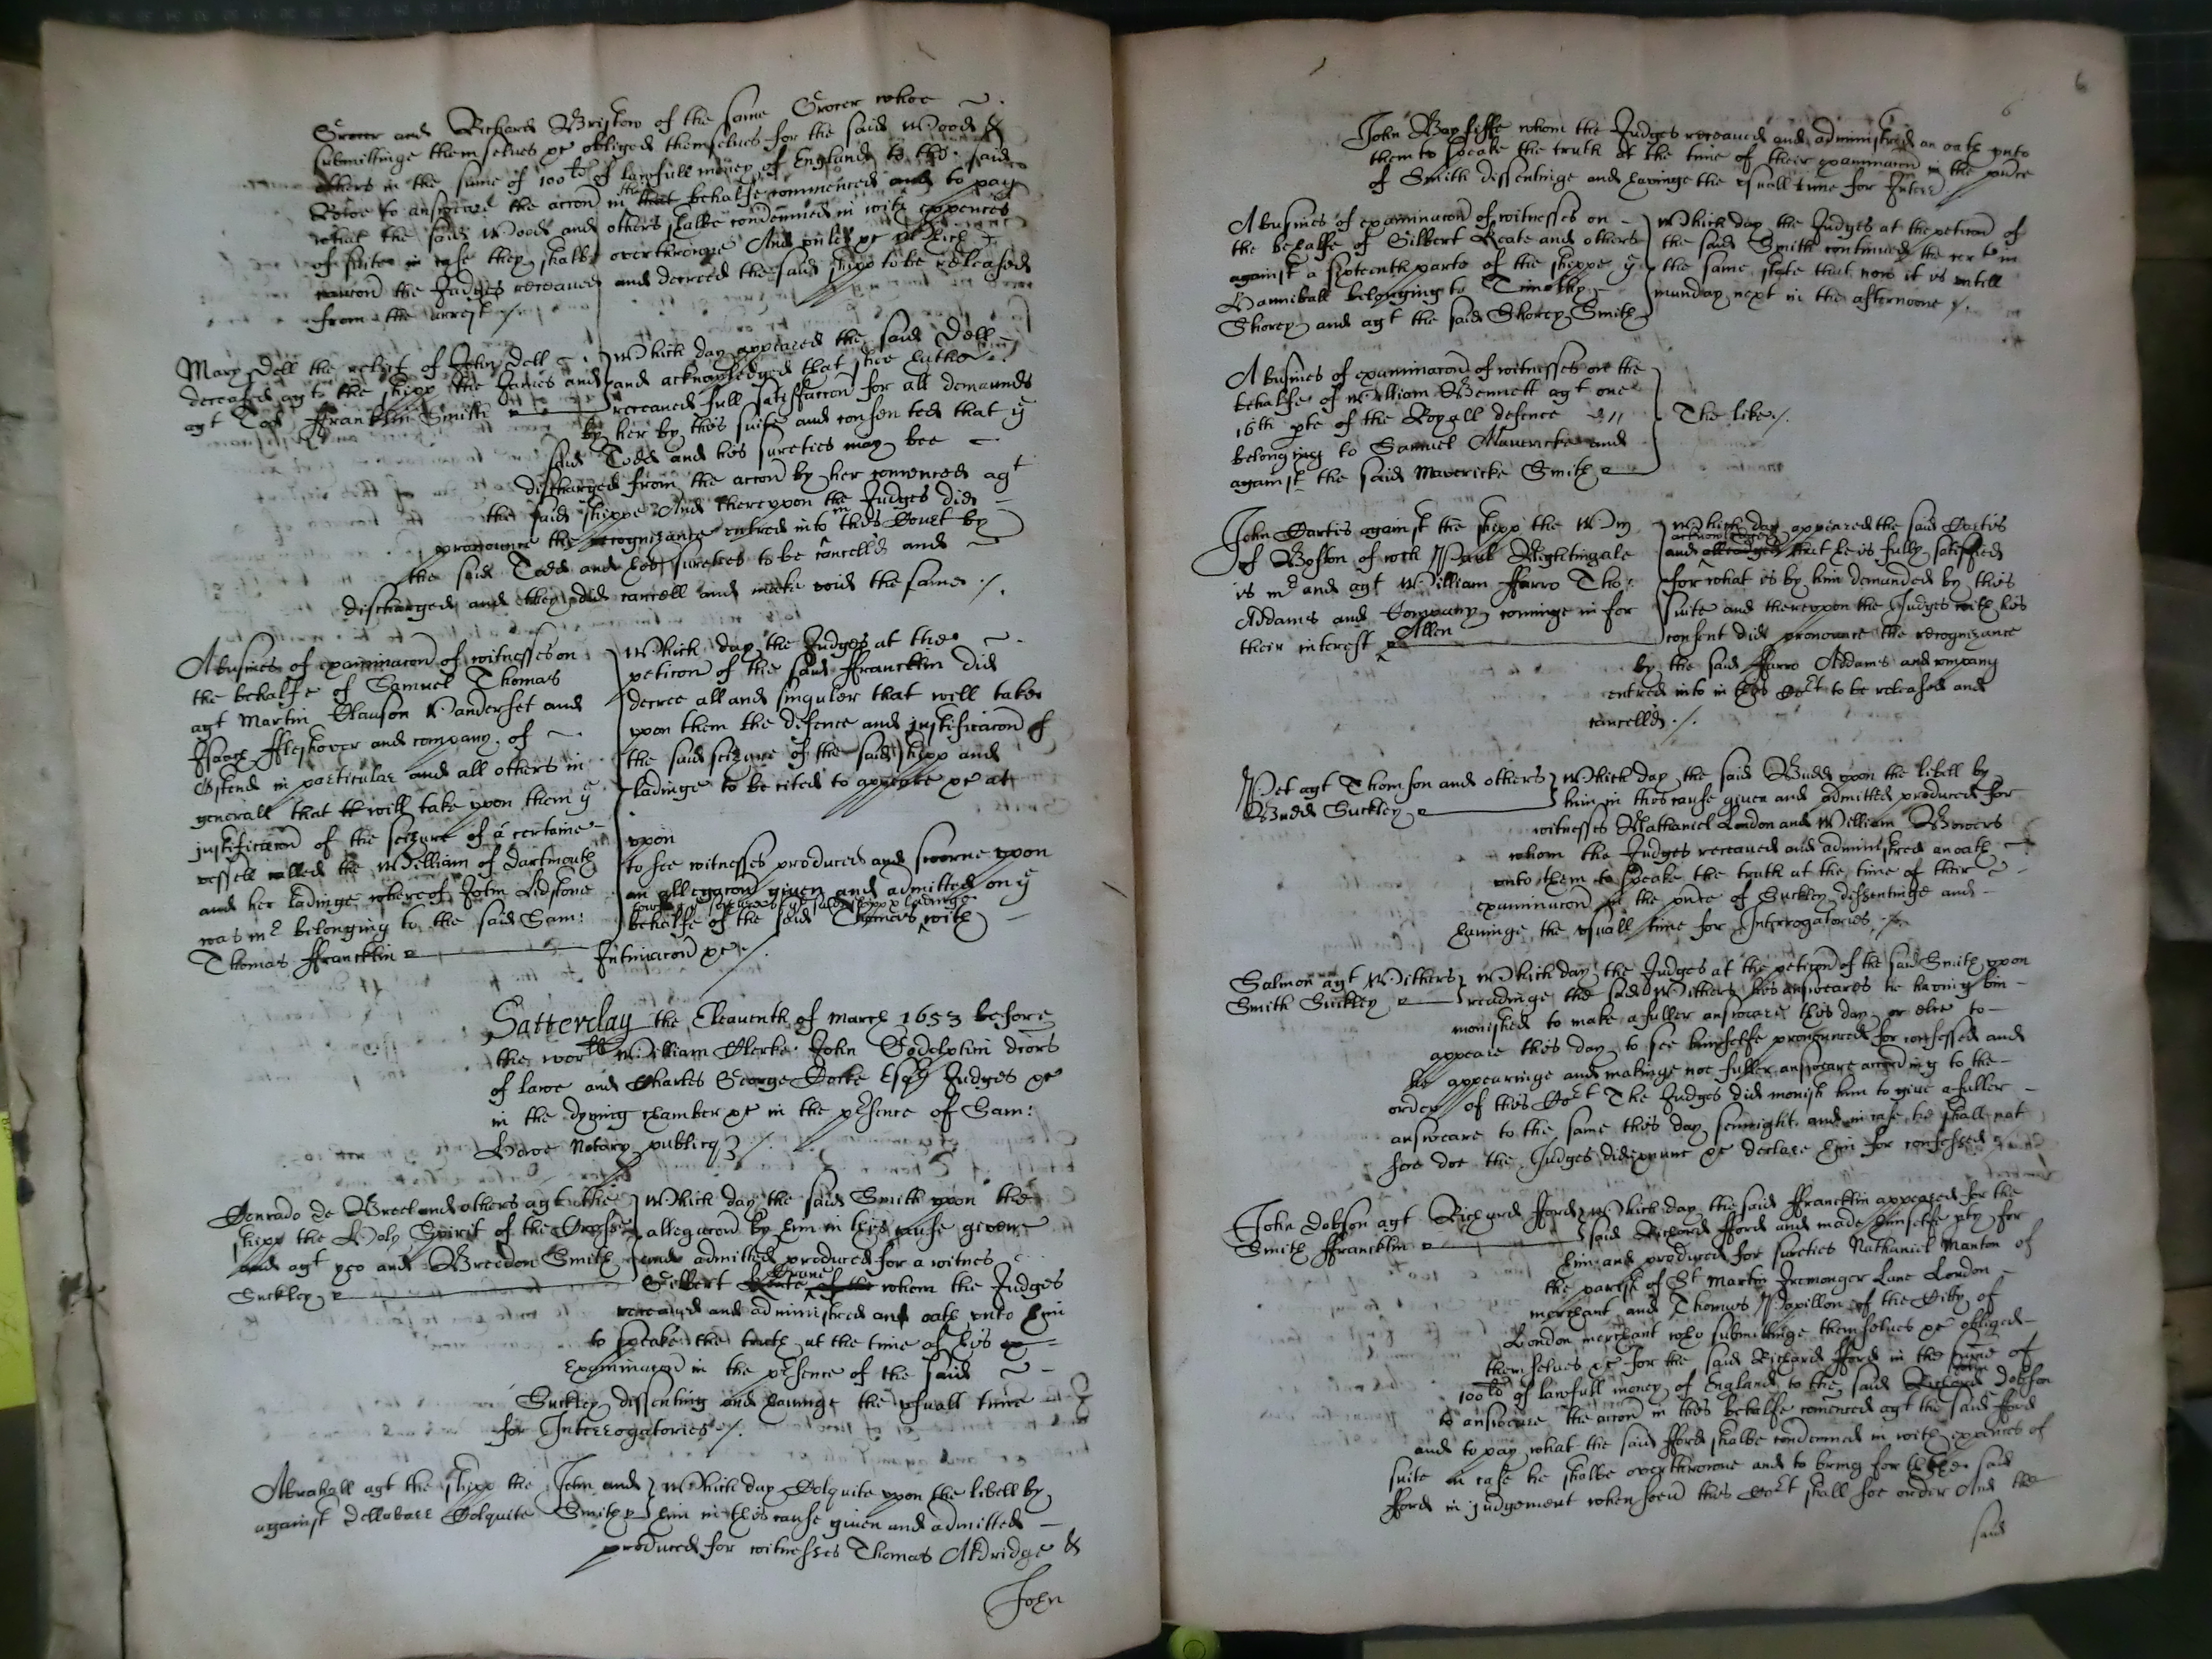 Grocer and Richard Bristow of the same Grocer whoe
submittinge themselves &c obliged themselves for the said Wood &
others in the sume of 100li of lawfull money of England to the said
to answeare the accon in this behalfe commenced and to pay
what the said Wood and others shalbe condemned in with expences
of suite in case they shalbe overthrowne And unles &c Which
caucon the Judges receaued and decreed the said shipp to be released
from the arrest /.
Mary Dell the relict of John Dell
deceased agt the shipp the James and
agt Tod ffrancklin Smith
Which day appeared the said Dell
and acknowledged that shee hathe
receaued full satisfaccon for all demaunds
by her by this suite and consented that ye
said Todd and his sureties may bee
discharged from the accon by her comenced agt
the said shippe And thereupon the Judges did
pronounce the recognizance entred into in this Court by
the said Todd and his sureties to be cancelld and
discharged and they did cancell and make void the same /.
A busines of examinacon of witnesses on
the behalfe of Samuel Thomas
agt Martin Clauson Vanderset and
Isaack Fleshover and company of
Ostend in particular and all others in
generall that will take upon them ye
justificacon of the seizure of a certaine
vessell called the William of Dartmouth
and her ladinge whereof John Lidstone
was mr belonging to the said Sam:
Thomas ffrancklin
Which day the Judges at the
peticon of the said ffrancklin did
decree all and singuler that will take
upon them the defence and justificacon of
the said seizure of the said shipp and
ladinge to be cited to appeare &c at
upon
to see witnesses produced and sworne upon
an allegacon given and admitted on ye
behalfe of the said Thomas with
Intimacon &c /.
Satterday the Eleaventh of March 1653 before
the worlls William Clerke John Godolphin dtors
of lawe and Charles George Cocke Esqs Judges &c
in the dyning chamber &c in the presence of Sam:
Howe Notary publicq /.
Conrado de Breel and others agt the
shipp the Holy Spirit of the Crosse
and agt peo and Breedon Smith
Suckley
Which day the said Smith upon the
allegacon by him in this cause given
and admitted produced for a witnes
Gilbert Keate of the whom the Judges
receaued and administred and oath unto him
to speake the truth at the time of his
Examinacon in the presence of the said
Suckley dissenting and hauinge the usuall time
for Interrogatories /.
Abrahall agt the shipp the John and
against Dellabarr Colquite Smith
Which day Colquite upon the libell by
him in this cause given and admitted
produced for witnesses Thomas Aldridge &
John
6
John Bay fiffe whom the Judges receaued and administred an oath unto
them to speake the truth at the time of their examinacon in the pnce
of Smith dissentinge and havinge the usuall time for Interr /.
A busines of examinacon of witnesses on
the behalfe of Gilbert Keate and others
against a sixteenth parte of the shippe ye
Hanniball belonging to Timothy
Skorey and agt the said Skorey Smith
Which day the Judges at the peticon of
the said Smith continued the cert in
the same state that now it is untill
munday next in the afternoone /.
A busines of examinacon of witnesses on the
behalfe of William Bennett agt one
16th pte of the Royall defence
belonging to Samuel Mavericke and
against the said Mavericke Smith
The like /.
John Cartis against the shipp the Wm
of Boston of wch Paul Nightingale
is mr and agt William Farro Tho:
Addams and Company cominge in for
their interest Allen
Which day appeared the said Cartis
and acknowledged that he is fully satisfied
for what is by him demanded by this
suite and thereupon the Judges with his
consent did pronounce the recognizance
by the said Farro Addams and company
entred into in this Cort to be released and
cancelld /.
Pet agt Thomson and others
Budd Suckley
Which day the said Budd upon the libell by
him in this cause given and admitted produced for
witnesses Nathaniel London and William Bowers
whom the Judges receaued and administred an oath
unto them to speake the truth at the time of their
examinacon in the pnce of Suckley dissentinge and
hauinge the usuall time for Interrogatories /.
Salmon agt Withers
Smith Suckley
Which day the Judges at the peticon of the said Smith upon
readinge the said Withers his answeares he having bin
monished to make a fuller answeare this day or else to
appeare this day to see himselfe pronounced for confessed and
he appearinge and makinge noe fuller answeare according to the
order of this Cort The Judges did monish him to give a fuller
answeare to the same this day sennight and in case he shall not
soe doe the Judges did pnunc &c declare him for confessed
John Dobson agt Richard Ford
Smith ffrancklin
Which day the said ffrancklin appeared for the
said Richard Ford and made himselfe pty for
him and produced for sureties Nathaniel Manton of
the parish of St Martin Iremonger Lane London
merchant and Thomas Papillon of the Citty of
London merchant who submittinge themselves &c obliged
themselves &c for the said Richard Ford in the sume of
100li of lawfull money of England to the said John Dobson
to answeare the accon in this behalfe comenced agt the said Ford
and to pay what the said Ford shalbe condemned in with expences of
suite in case he shalbe overthrowne and to bring for the said
Ford in judgement whensoeu this Cort shall soe order And the
said